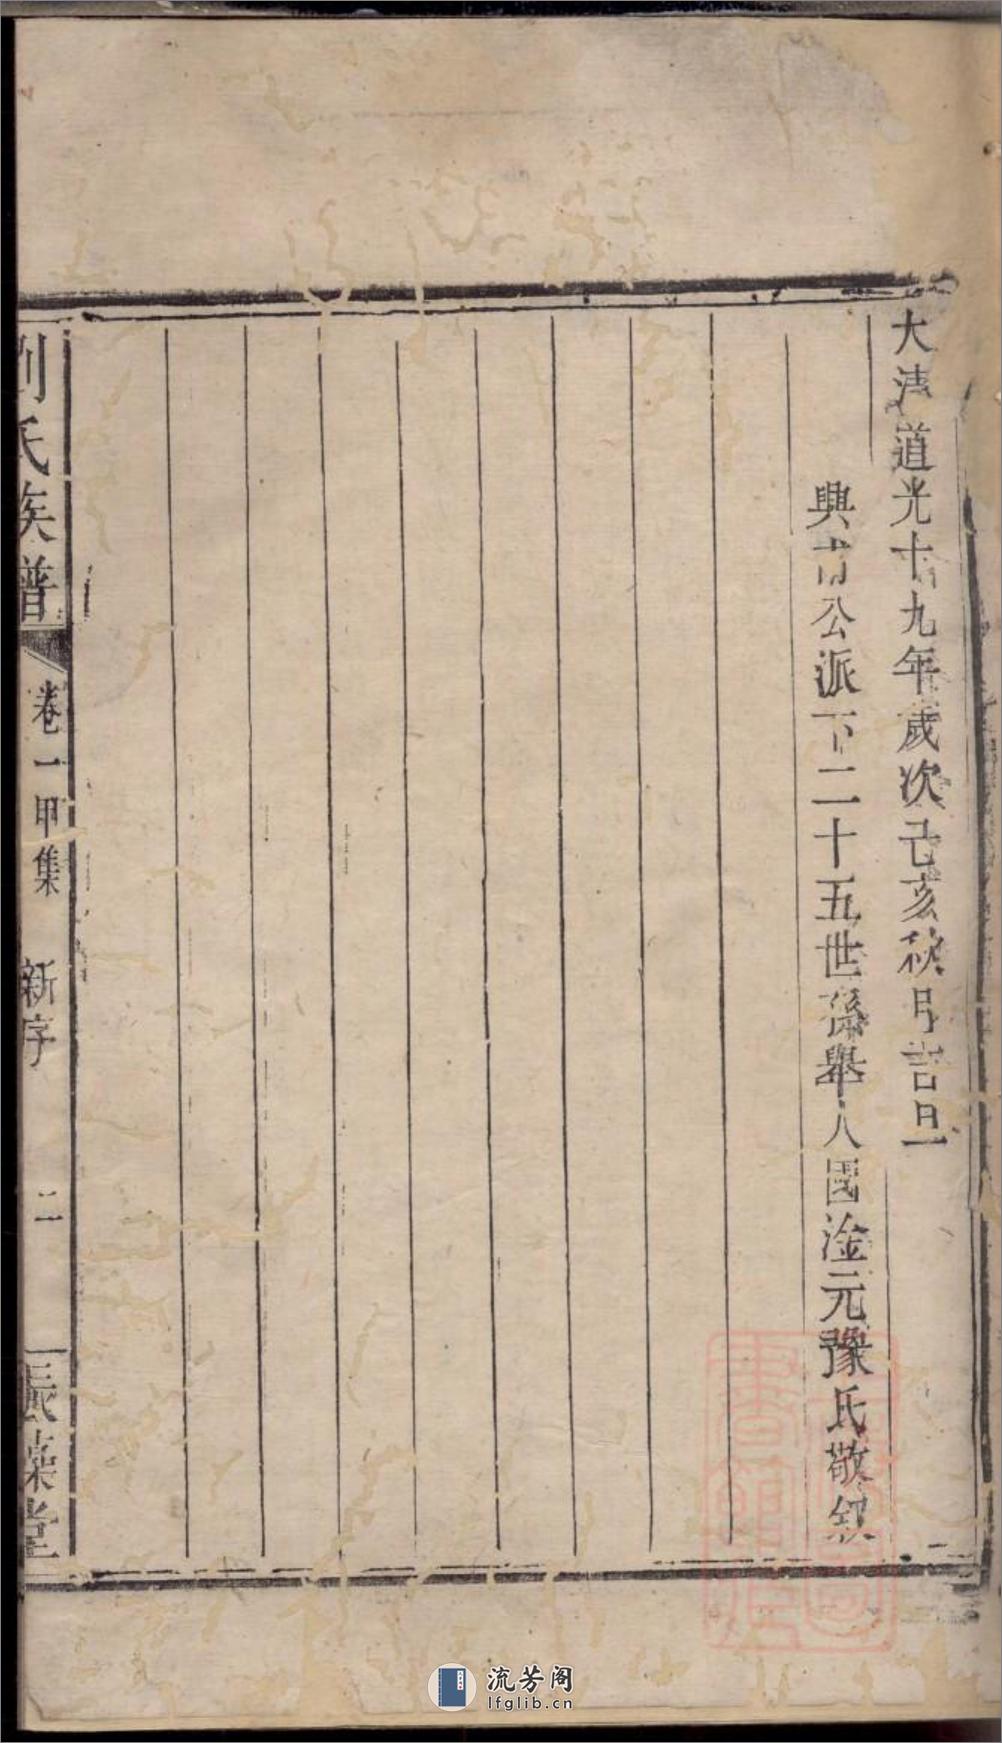 大清道光十九年歲次己亥秋月吉旦
興甫公派下二十五世孫舉人國淦元豫氏敬敘
劉氏族譜
卷一甲集
新序
二
振藻堂
流芳阁
lfglib.cn